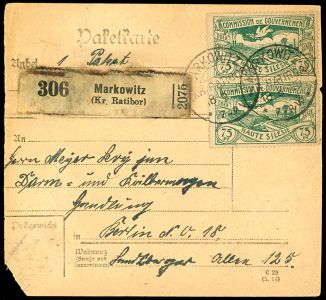 Paketkarte
COMMISSION DE GOUVERNEMENT
75
HAUTE SILESIE
75
Anbei 1 Paket
306 Markowitz
(Kr. Ratibor)
2075
COMMISSION DE GOUVERNEMENT
75
HAUTE SILESIE
75
An
Herrn Meyer Levy jun
Darm- und
Handlung
Postgewicht
in Berlin N.O. 18.
Wohnung
(Straße und
Landsberger Allee 125
C 20